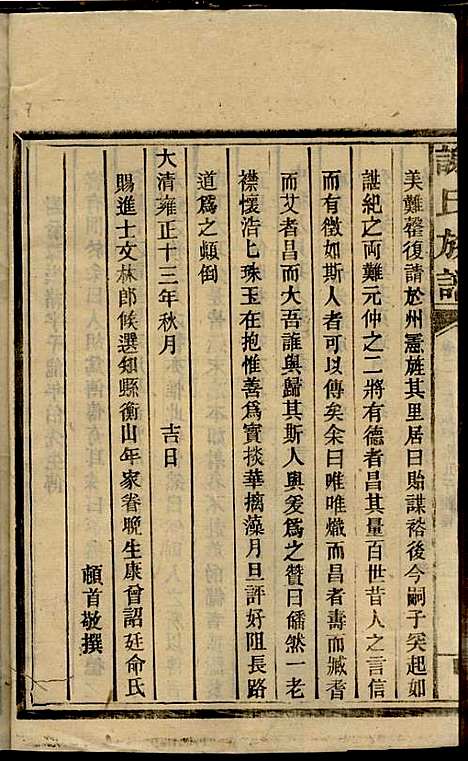 謝氏族譜
美難罄復請於州憲旌其里居曰貽謀裕後今嗣子突起如
諶紀之両難元仲之二將有德者昌其量百世昔人之言信
而有徵如斯人者可以傳矣余曰唯唯熾而昌者壽而臧耆
而艾者昌而大吾誰與歸其斯人與爰爲之贊曰皤然一老
襟懷浩七珠玉在抱惟善爲寳掞華摛藻月旦評好阻長路
道爲之頫倒
大清雍正十三年秋月　吉日
賜進士文林郎候選知縣衡山年家眷晚生康曾詔廷俞氏
頓首敬撰